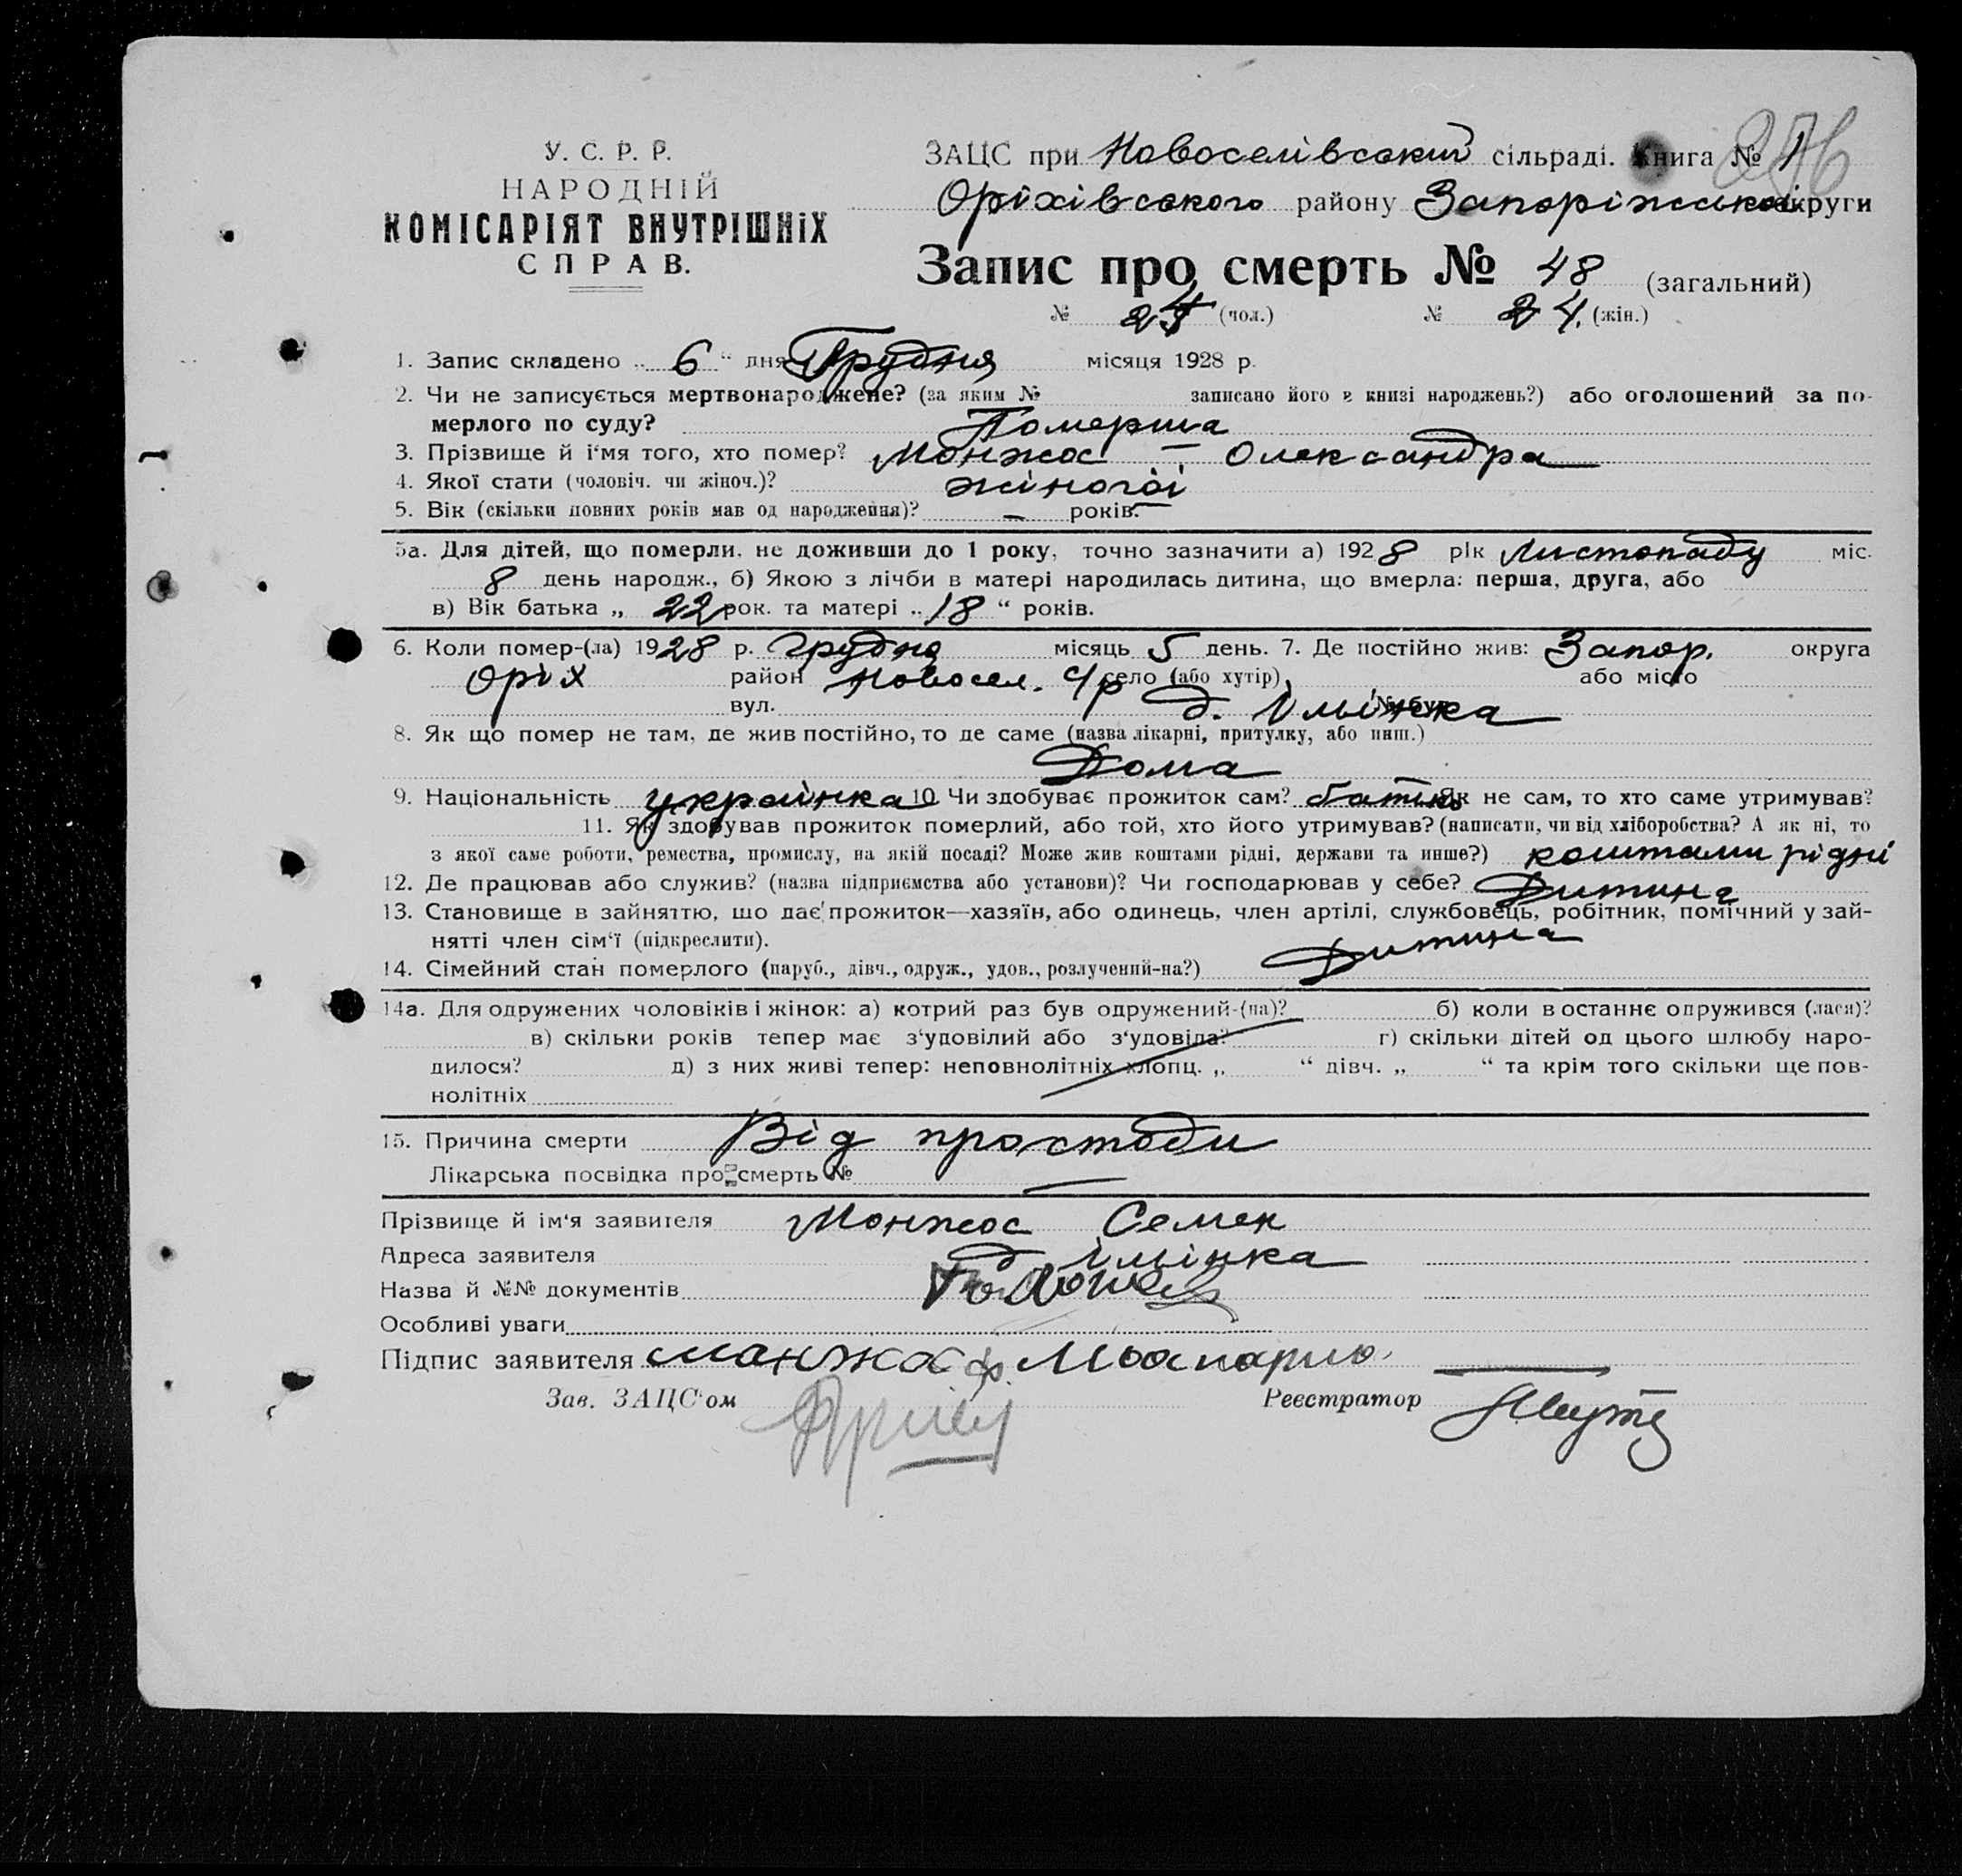 У. С. Р. Р.
НАРОДНІЙ
КОМІСАРІЯТ ВНУТРІШНІХ
СПРАВ.
ЗАЦС при Новоселівський сільраді. Книга № 1
Оріхівського району Запоріжської округи
Запис про смерть № 48 (загальний)
№ 24 (чол.) № 24. (жін.)
1. Запис складено „ 6 “ дня Грудня місяця 1928 р.
2. Чи не записується мертвонароджене? (за яким № записано його в книзі народжень?) або оголошений за по-
мерлого по суду? Померша
3. Прізвище й і'мя того, хто помер? Монжос – Олександра
4. Якої стати (чоловіч. чи жіноч.)? жіночої
5. Вік (скільки повних років мав од народження)? – років.
5а. Для дітей, що померли, не доживши до 1 року, точно зазначити а) 1928 рік Листопаду міс.
8 день народж., б) Якою з лічби в матері народилась дитина, що вмерла: перша, друга, або
в) Вік батька „ 22 рок. та матері „ 18 “ років.
6. Коли помер-(ла) 1928 р. грудня місяць 5 день. 7. Де постійно жив: Запор. округа
Оріх район Новосел. с/р село (або хутір) або місто
вул. № буд. д. Ільінка
8. Як що помер не там, де жив постійно, то де саме (назва лікарні, притулку, або инш.)
Дома
9. Національність українка 10. Чи здобуває прожиток сам? батько Як не сам, то хто саме утримував?
11. Як здобував прожиток померлий, або той, хто його утримував? (написати, чи від хліборобства? А як ні, то
з якої саме роботи, ремества, промислу, на якій посаді? Може жив коштами рідні, держави та инше?) коштами рідні
12. Де працював або служив? (назва підприємства або установи)? Чи господарював у себе? Дитина
13. Становище в зайняттю, що дає прожиток—хазяїн, або одинець, член артілі, службовець, робітник, помічний у зай-
нятті член сім'ї (підкреслити).
14. Сімейний стан померлого (паруб., дівч., одруж., удов., розлучений-на?) Дитина
14а. Для одружених чоловіків і жінок: а) котрий раз був одружений-(на)? б) коли в останнє одружився (лася)?
в) скільки років тепер має з'удовілий або з'удовіла? г) скільки дітей од цього шлюбу наро-
дилося? д) з них живі тепер: неповнолітніх хлопц. „ “ дівч. „ “ та крім того скільки ще пов-
нолітніх
15. Причина смерти Від простоди
Лікарська посвідка про смерть № —
Прізвище й ім'я заявителя Монжос Семен
Адреса заявителя д Ільінка
Назва й №№ документів
Особливі уваги
Підпис заявителя манжос
Зав. ЗАЦС'ом Реєстратор